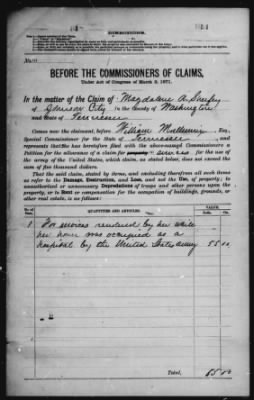 BEFORE THE COMMISSIONERS OF CLAIMS,
Under Act of Congress of March 3, 1871.
In the matter of the Claim of Magdalene A.
of Johnson City, in the County of Washington
and State of Tennessee
Comes now the claimant, before William Esq.,
Special Commissioner for the State of Tennessee, and
represents that he has heretofore filed with the above-named Commissioners a
Petition for the allowance of a claim for services for the use of
the army of the United States, which claim, as stated below, does not exceed the
sum of five thousand dollars.
That the said claim, stated by items, and excluding therefrom all such items
as refer to the Damage, Destruction, and Loss, and not the Use, of property; to
unauthorized or unnecessary Depredations of troops and other persons upon the
property, or to Rent or compensation for the occupation of buildings, grounds, or
other real estate, is as follows:
No. of Item.
QUANTITIES AND ARTICLES.
VALUE.
Dolls. Cts.
1 For services rendered by her while
her house was occupied as a
hospital by the United States army 55 00
Total, 55 00